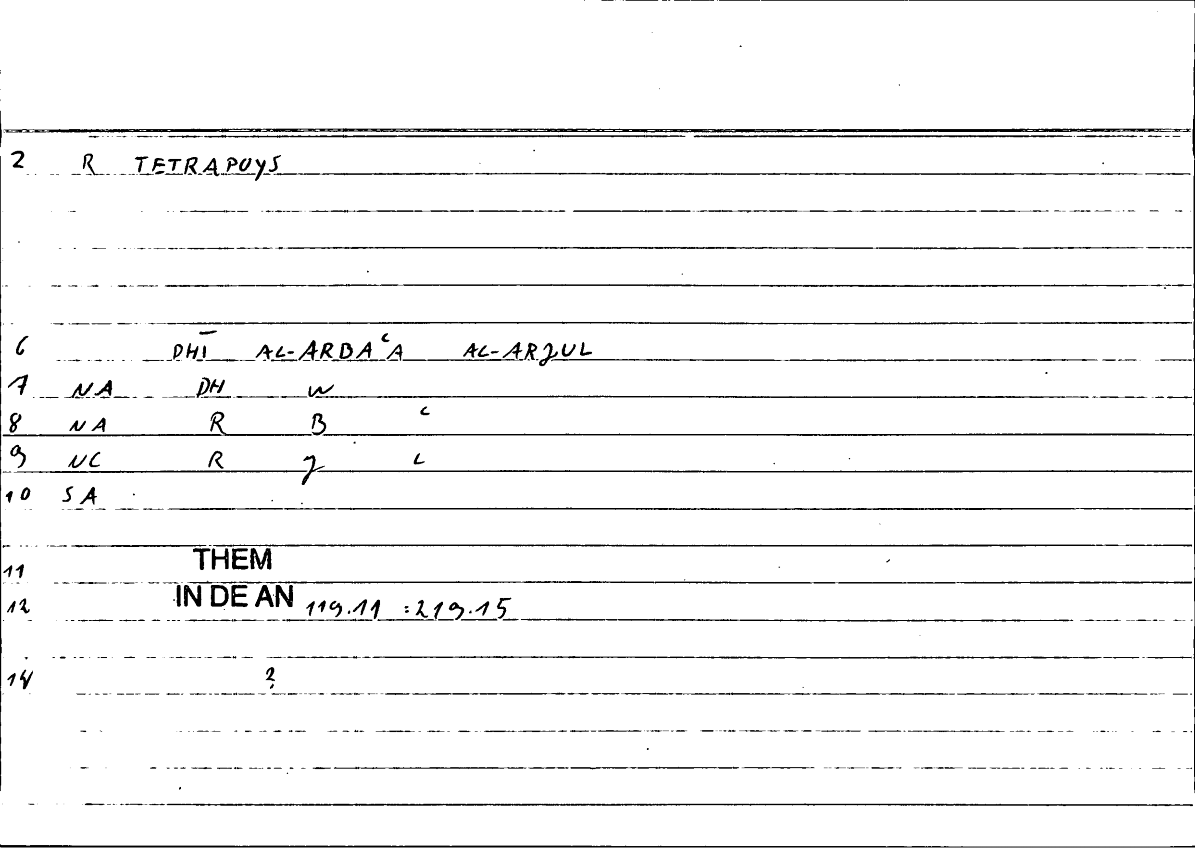 2 R TETRAPUYS
6 DHĪ AL-ARBAʿA AL-ARJUL
7 NA DH W
8 NA R B ʿ
9 NC R J L
10 SA
11 THEM
12 IN DE AN 119.11 :219.15
14 ?